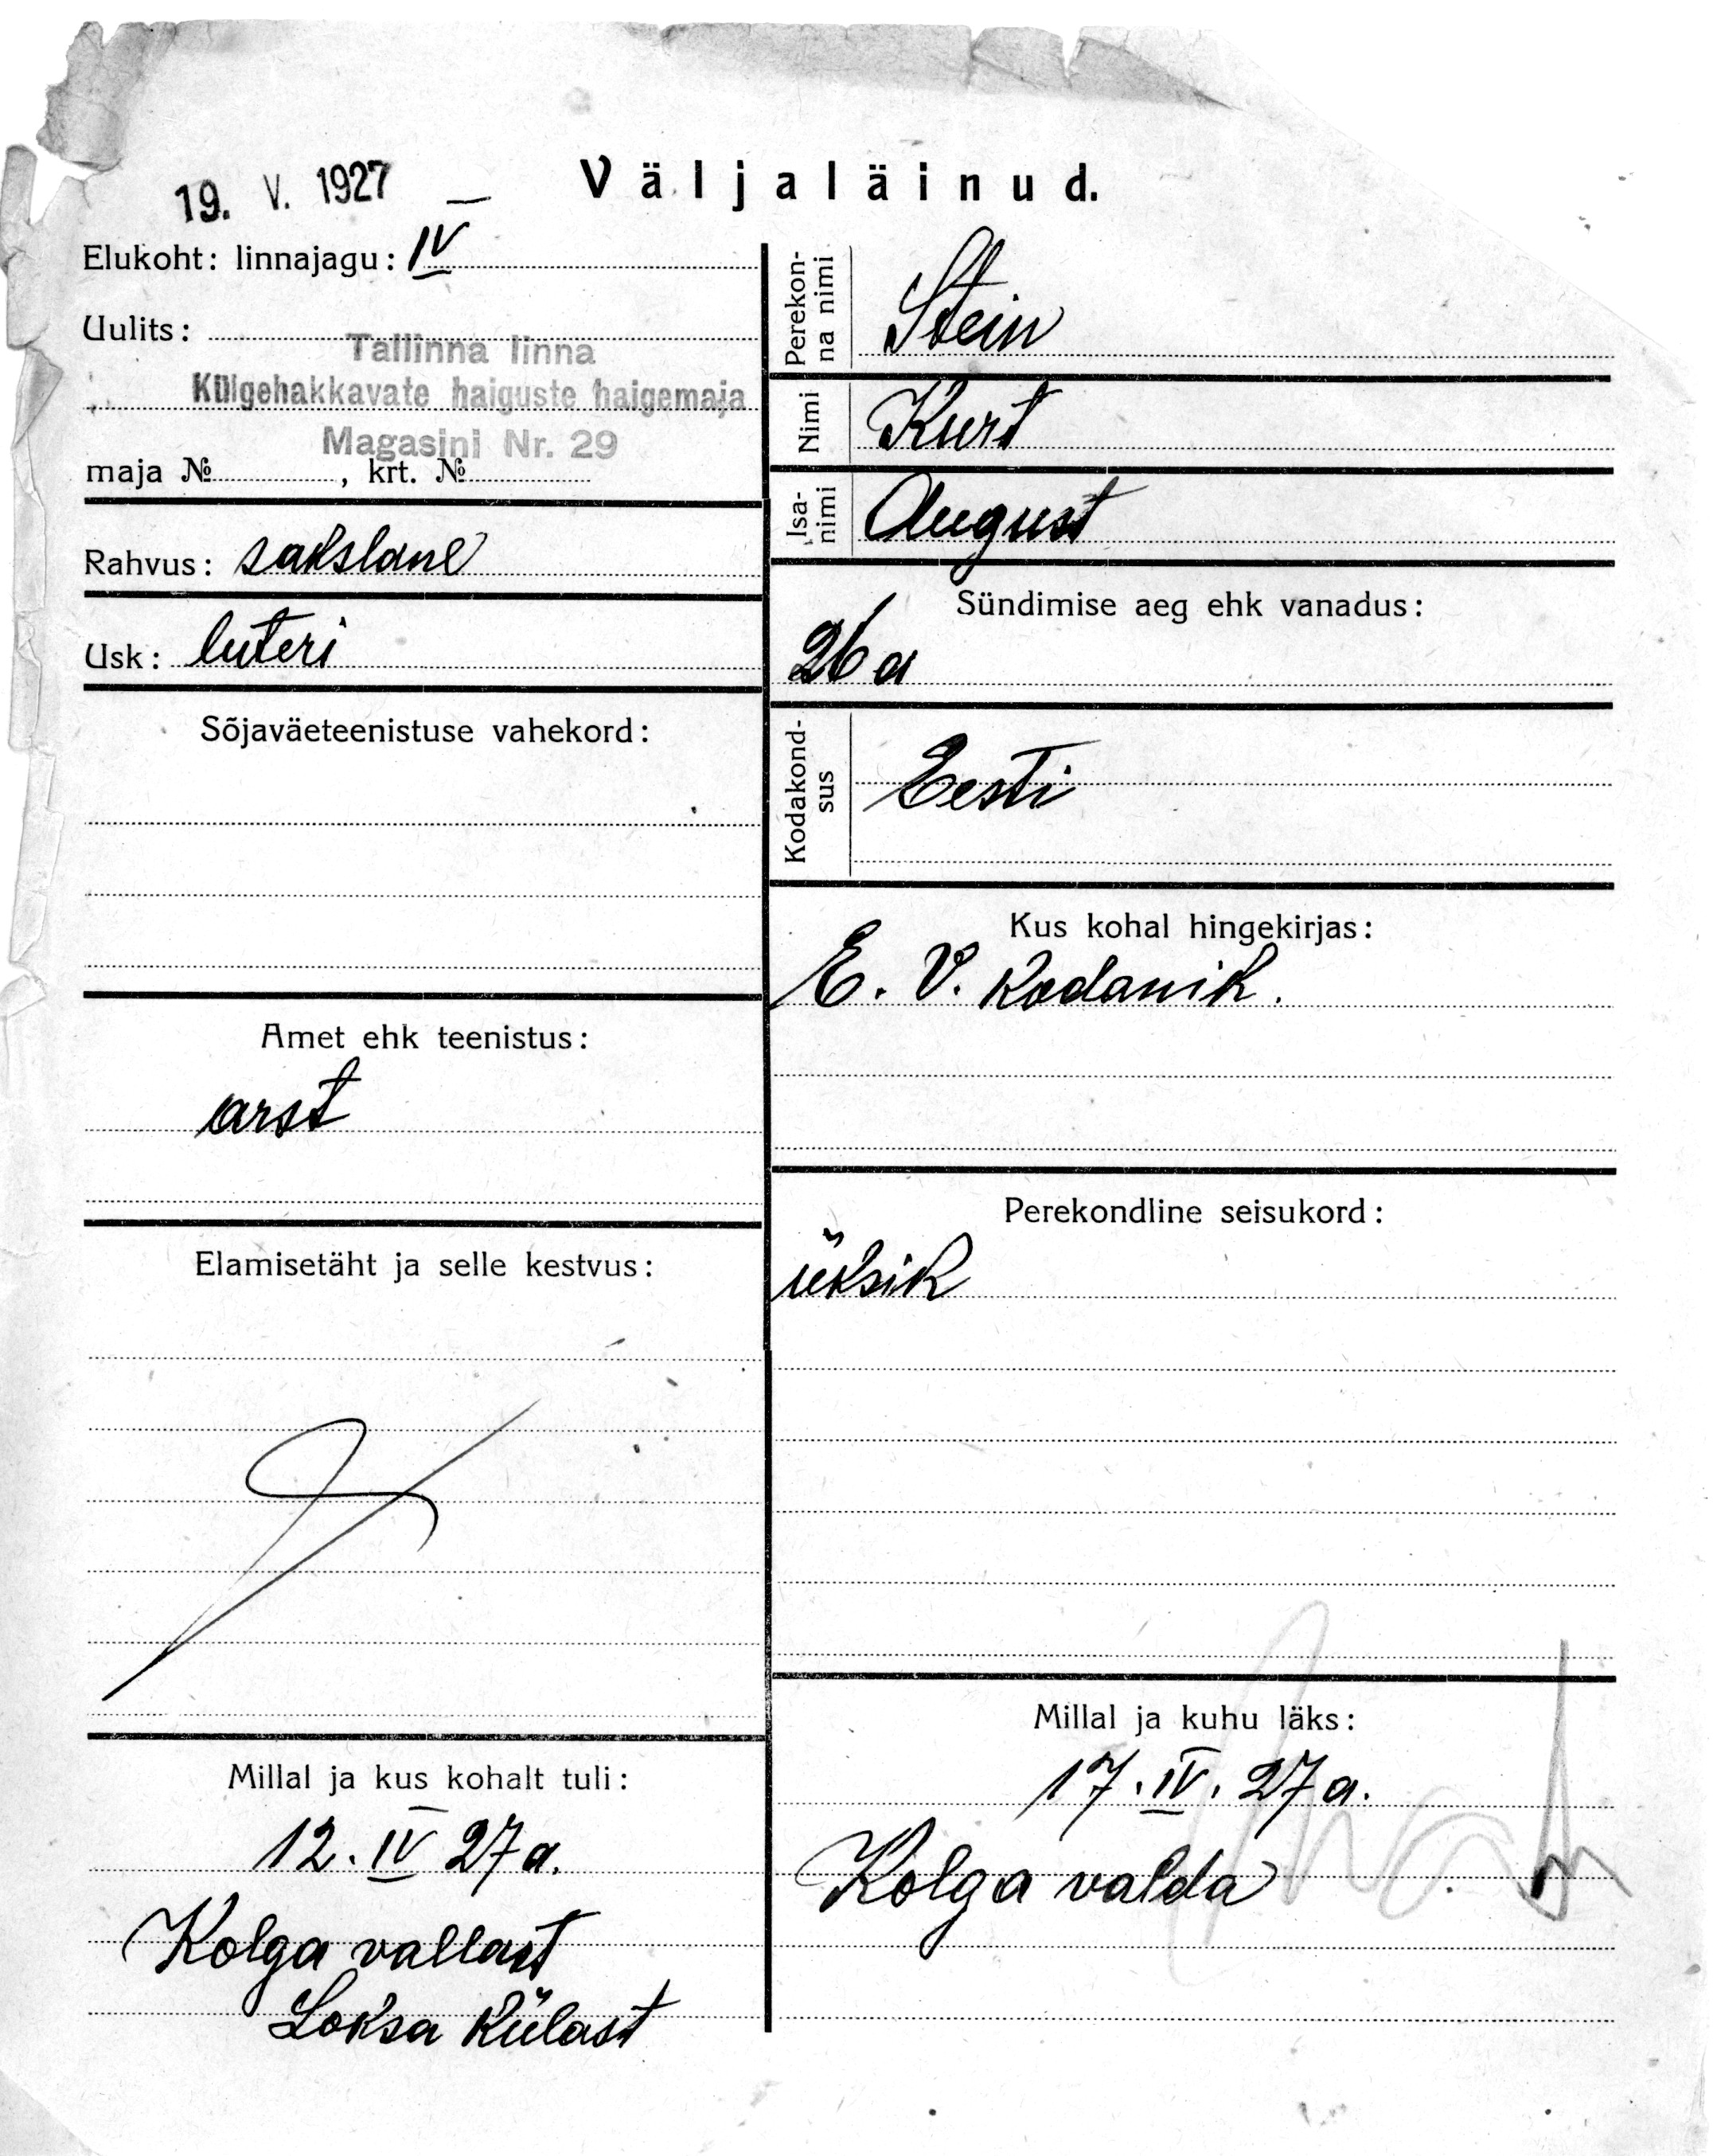 19. V. 1927
Väljaläinud.
Elukoht: linnajagu: IV
Uulits:
Tallinna linna
Külgehakkavate haiguste haigemaja
Magasini Nr. 29
maja №, krt. №
Rahvus: sakslane
Usk: luteri
Sõjaväeteenistuse vahekord:
Amet ehk teenistus:
arst
Elamisetäht ja selle kestvus:
Millal ja kus kohalt tuli:
12. IV 27 a.
Kolga vallast
Loksa külast
Perekon-
na nimi
Stein
Nimi
Kurt
Isa-
nimi
August
Sündimise aeg ehk vanadus:
26 a
Kodakond-
sus
Eesti
Kus kohal hingekirjas:
E. V. kodanik.
Perekondline seisukord:
üksik
Millal ja kuhu läks:
17. IV. 27 a.
Kolga valda